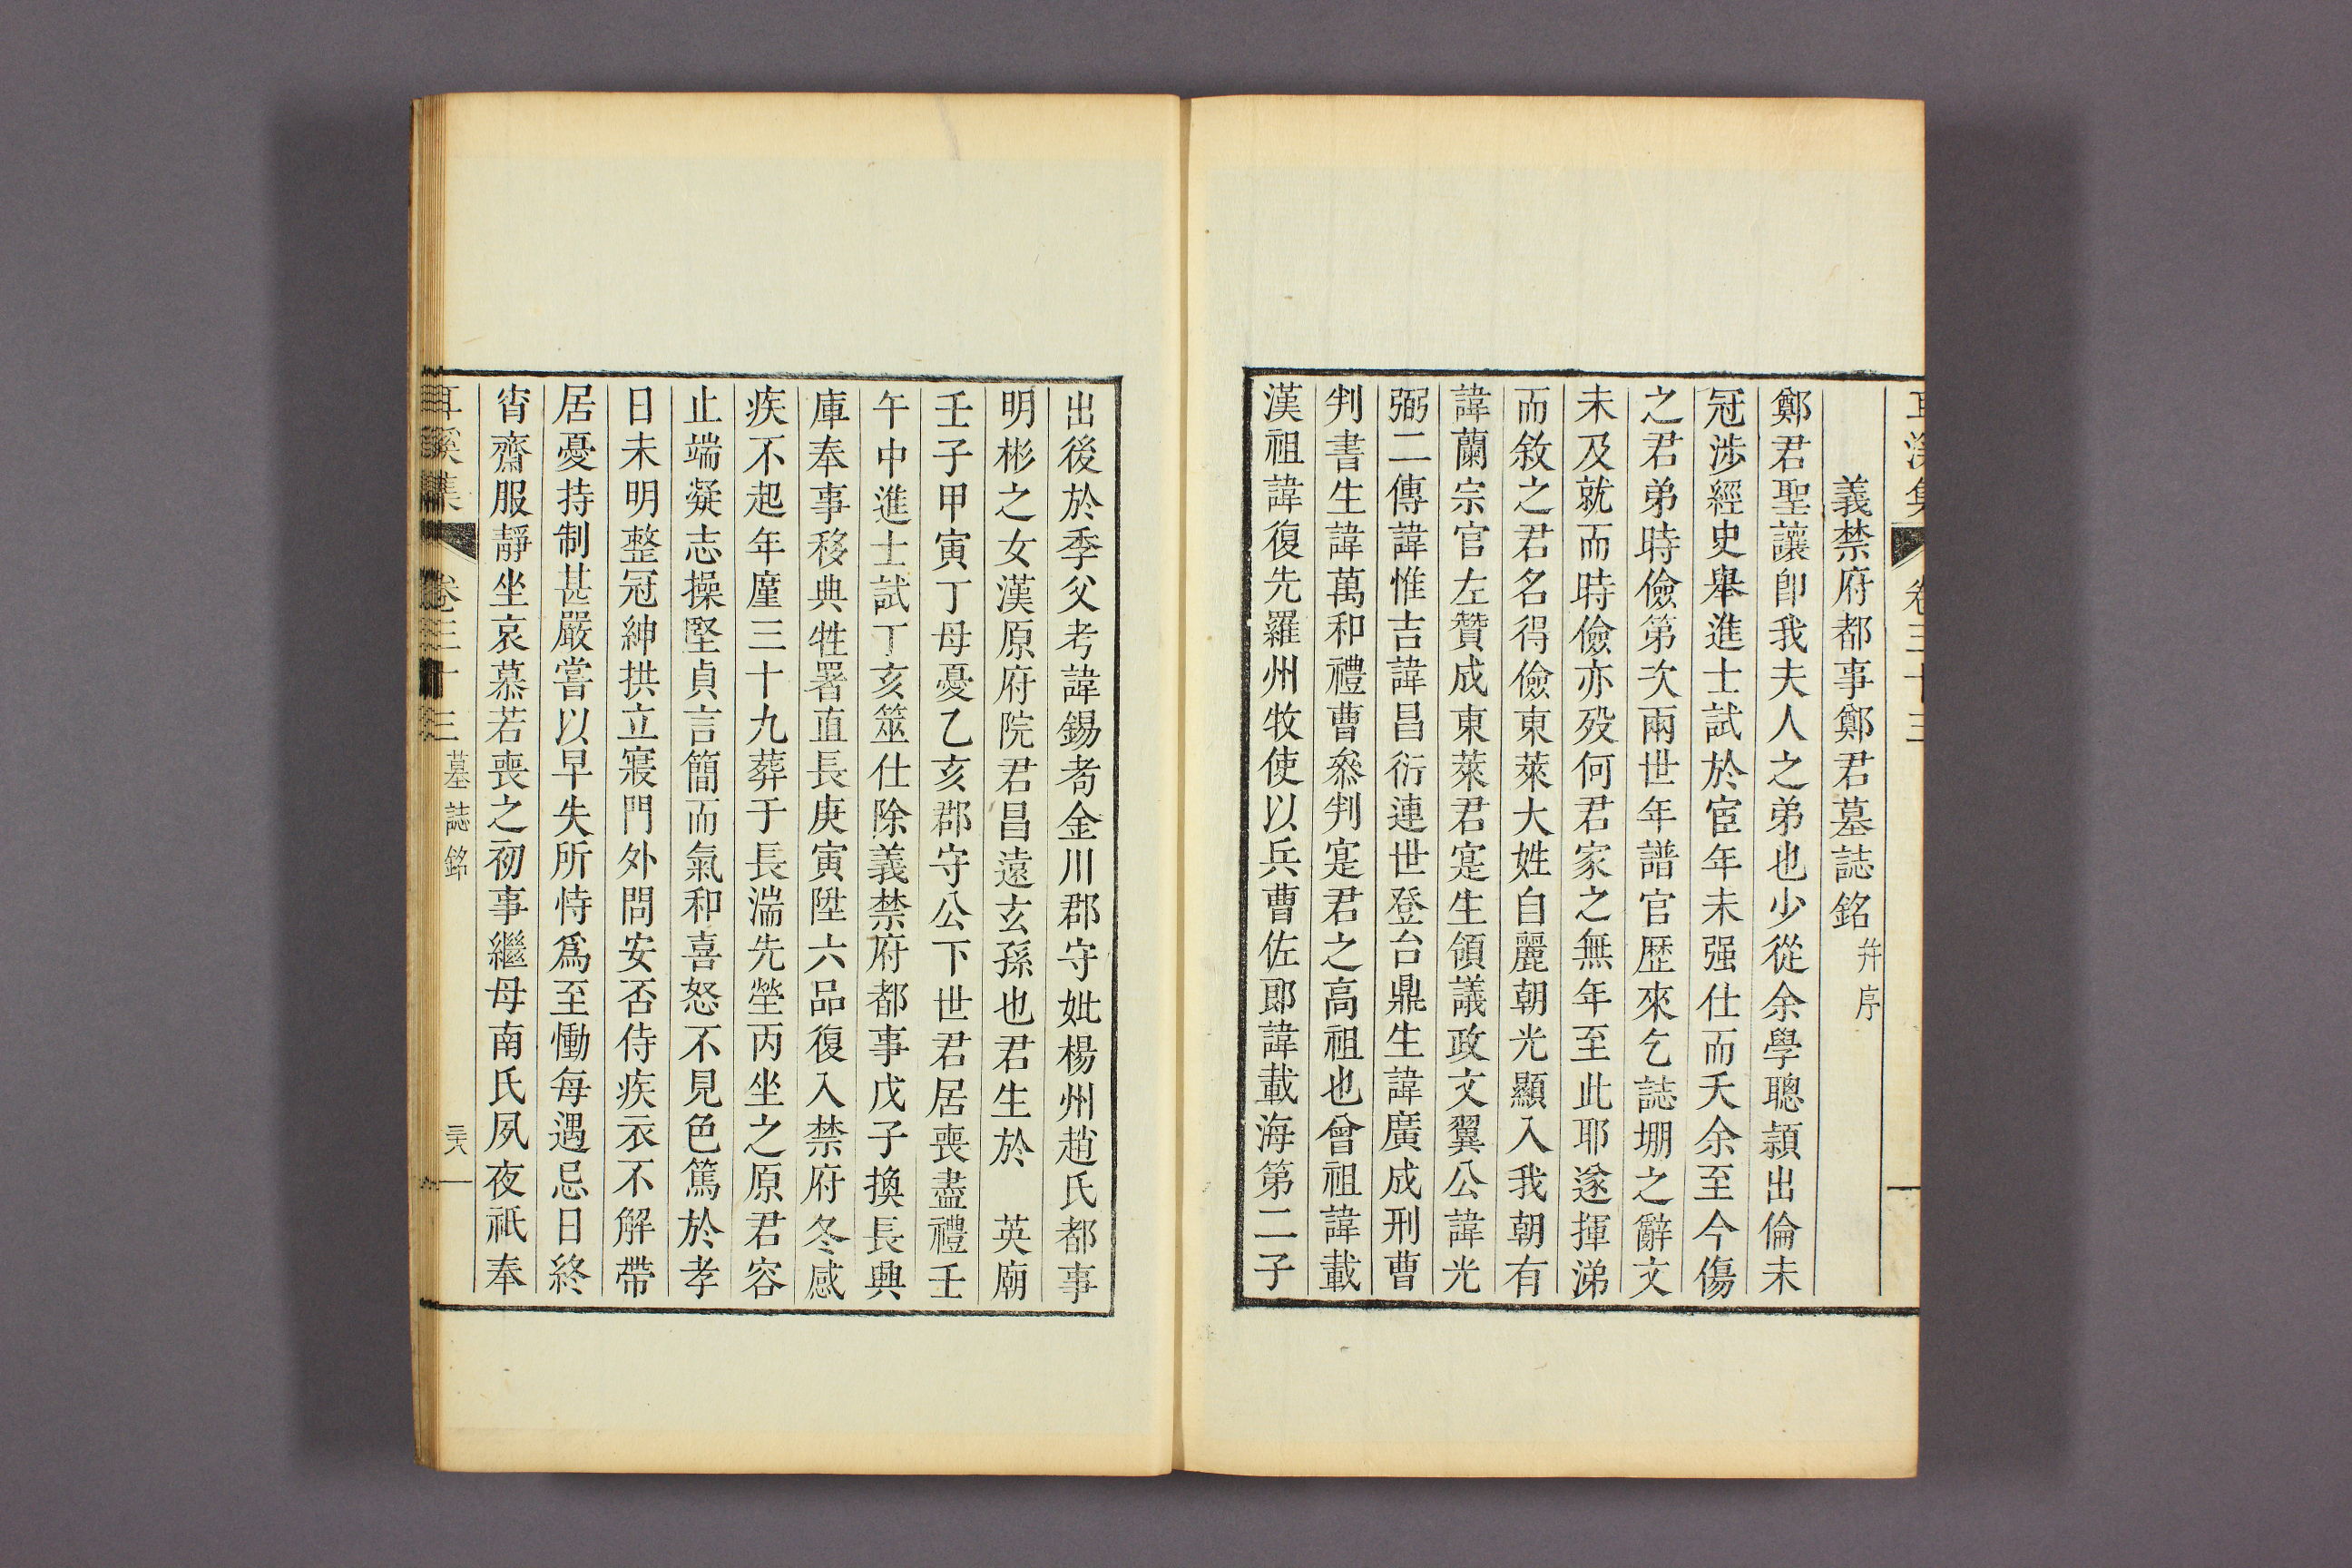 義禁府都事鄭君墓誌銘 幷序
鄭君聖讓卽我夫人之弟也少從余學聰顈出倫未
冠涉經史舉進士試於宦年未强仕而夭余至今傷
之君弟時儉第次兩世年譜官歷來乞誌堋之辭文
未及就而時儉亦歿何君家之無年至此耶遂揮涕
而敘之君名得儉東萊大姓自麗朝光顯入我朝有
諱蘭宗官左贊成東萊君寔生領議政文翼公諱光
弼二傳諱惟吉諱昌衍連世登台鼎生諱廣成刑曹
判書生諱萬和禮曹叅判寔君之高祖也曾祖諱載
漢祖諱復先羅州牧使以兵曹佐郞諱載海第二子
出後於季父考諱錫耈金川郡守妣楊州趙氏都事
明彬之女漢原府院君昌遠玄孫也君生於 英廟
壬子甲寅丁母憂乙亥郡守公下世君居喪盡禮壬
午中進士試丁亥筮仕除義禁府都事戊子換長興
庫奉事移典牲署直長庚寅陞六品復入禁府冬感
疾不起年廑三十九葬于長湍先塋丙坐之原君容
止端凝志操堅貞言簡而氣和喜怒不見色篤於孝
日未明整冠紳拱立寢門外問安否侍疾衣不解帶
居憂持制甚嚴嘗以早失所恃爲至慟每遇忌日終
宵齋服靜坐哀慕若喪之初事繼母南氏夙夜祇奉
耳溪集 卷三十三 墓誌銘 三六